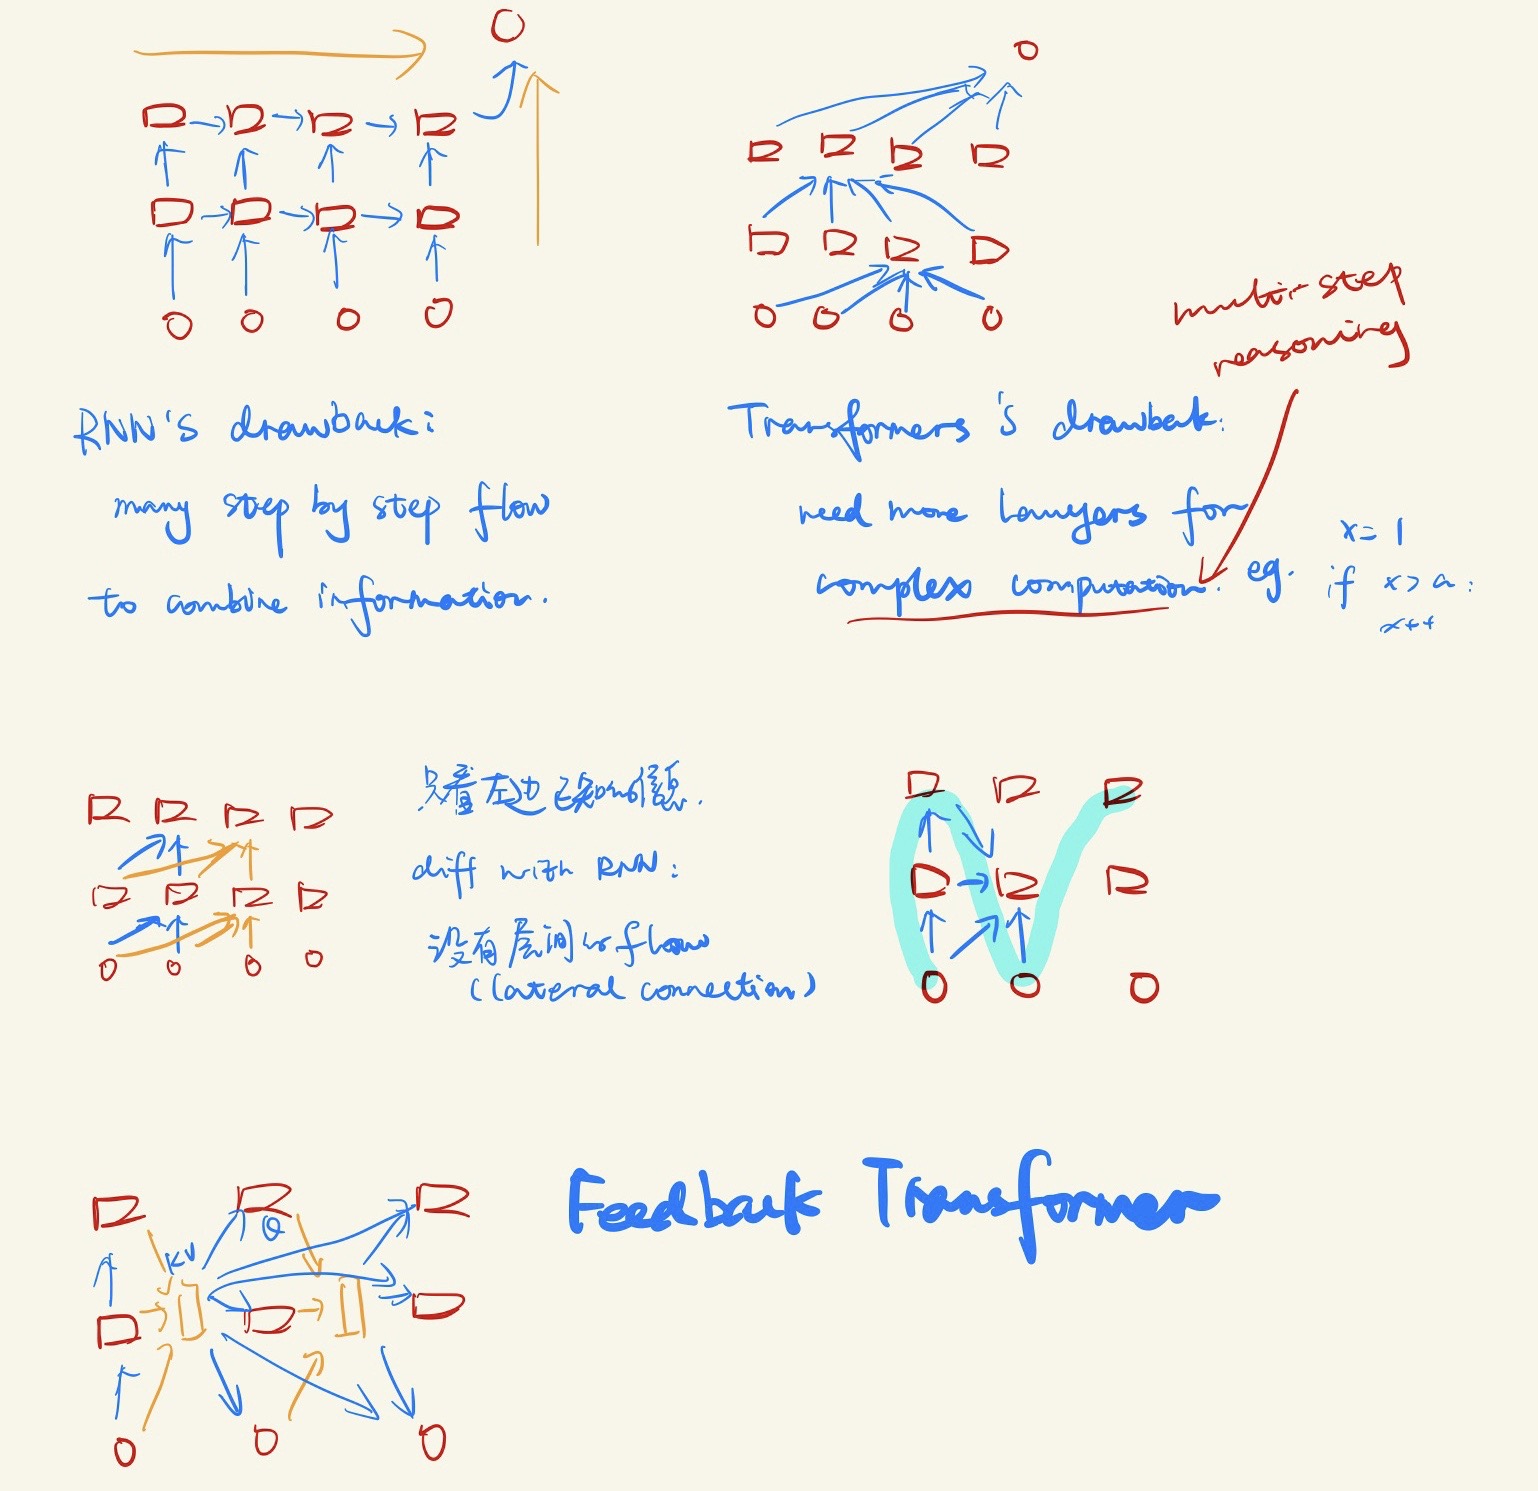 RNN's drawback:
many step by step flow
to combine information.
Transformers's drawbak:
need more lawyers for
complex computation.
multi-step
reasoning
eg.
x=1
if x>a:
x++
只看左边已知的信息.
diff with RNN:
没有层间的flow
(lateral connection)
KV
Q
Feedback Transformer